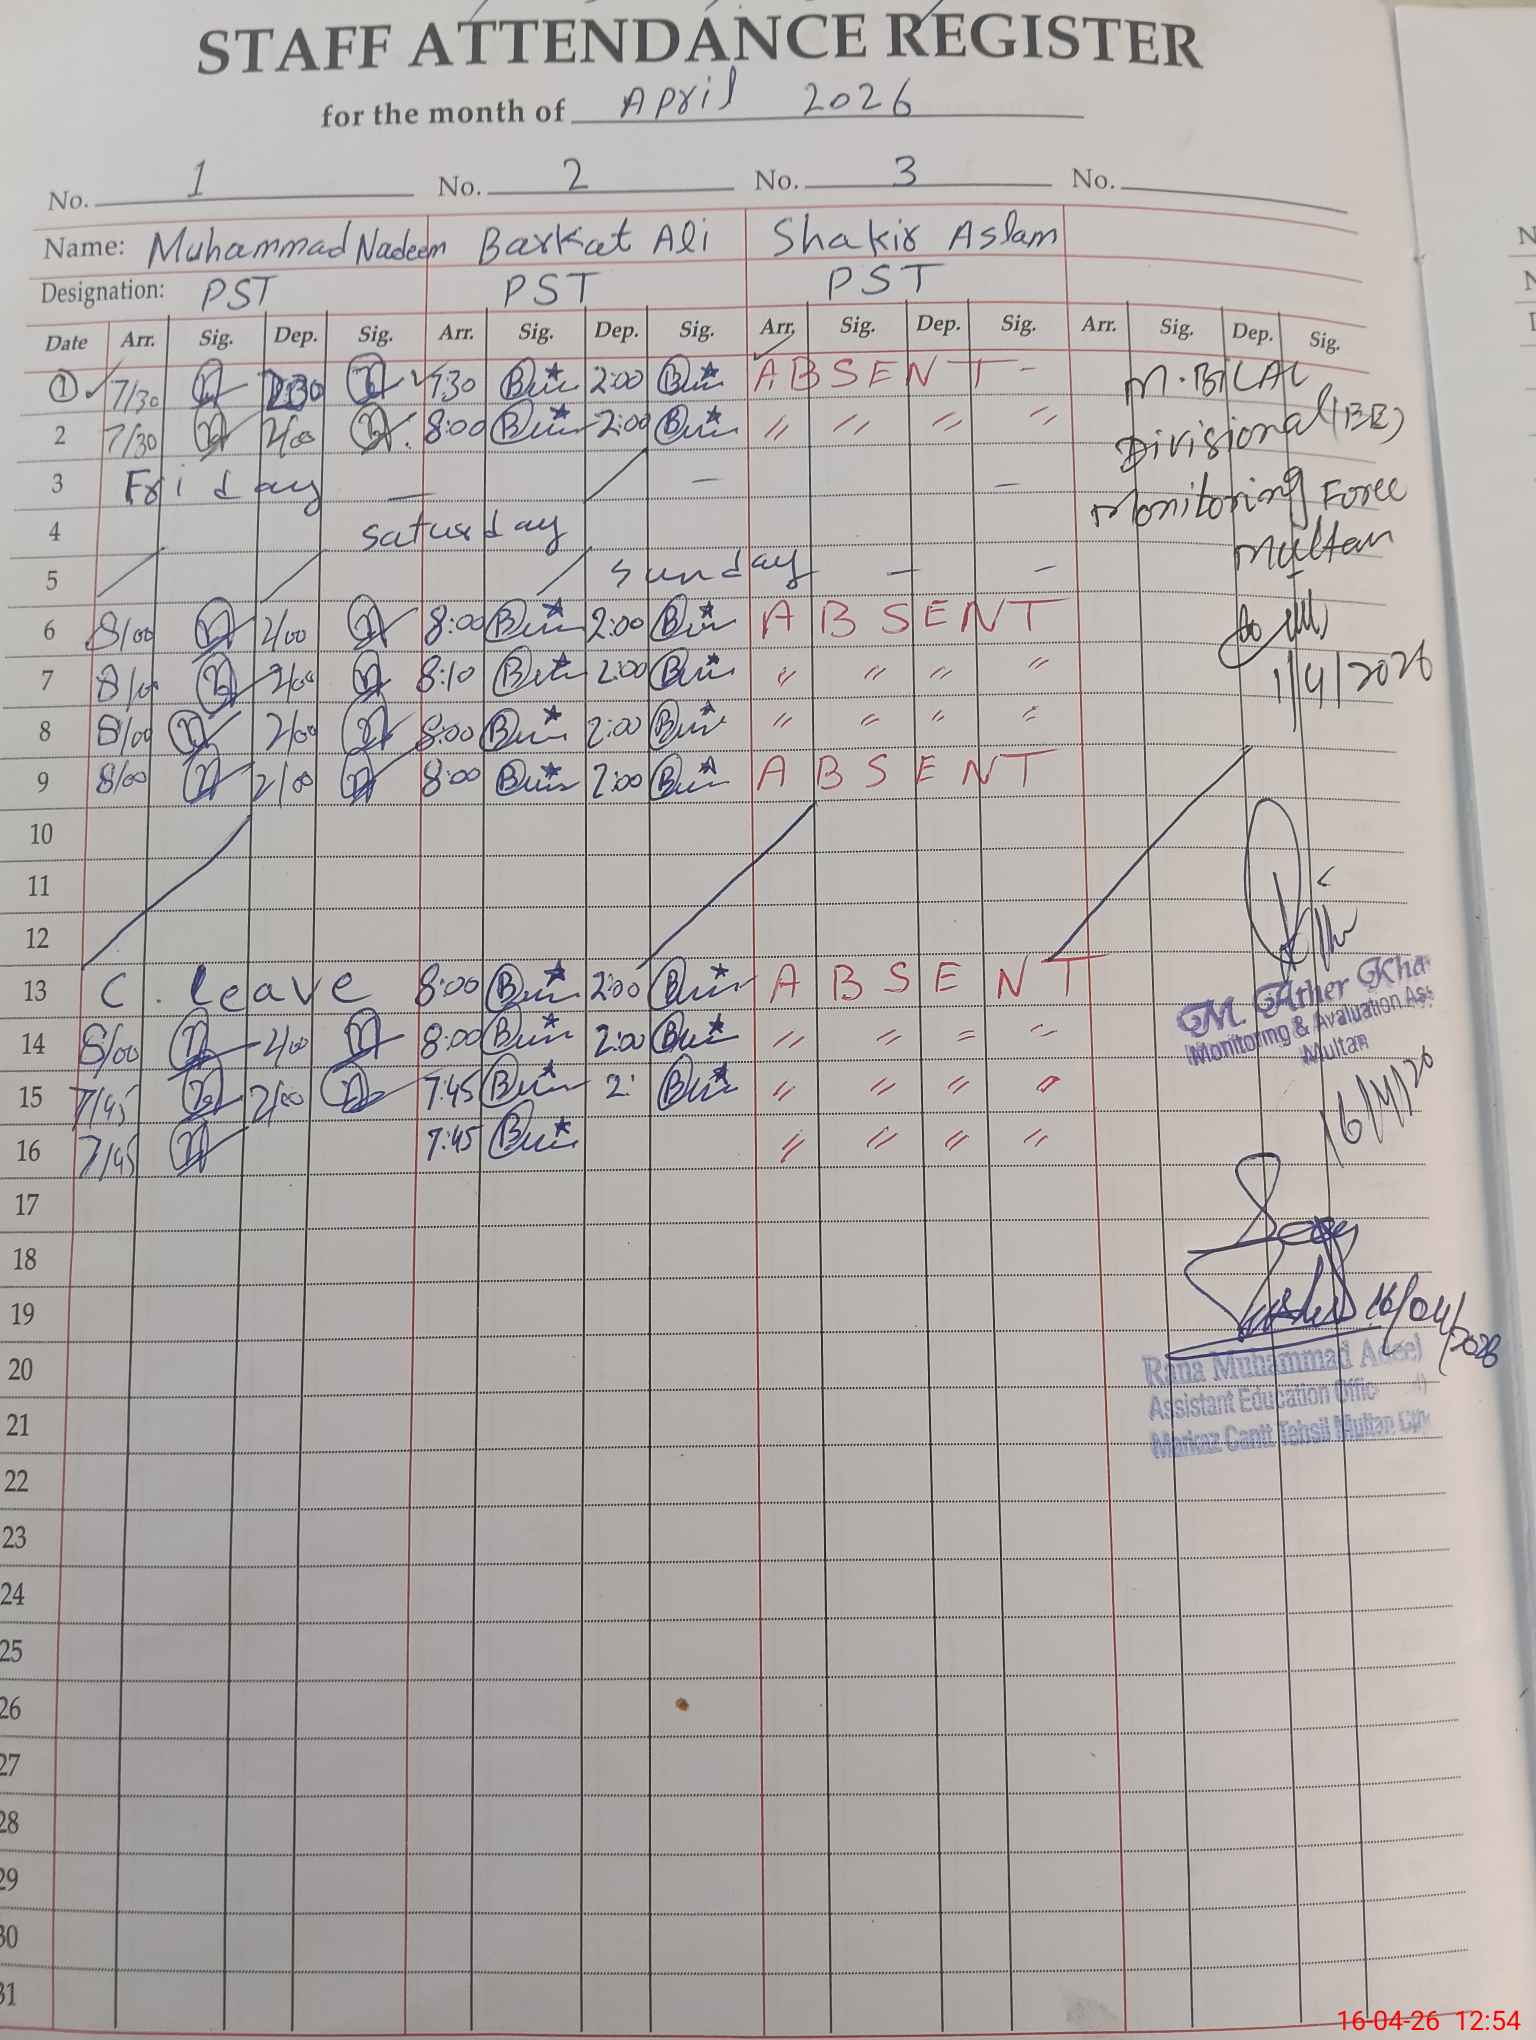 STAFF ATTENDANCE REGISTER
for the month of April 2026
No. 1 No. 2 No. 3 No.
Name: Muhammad Nadeem Barkat Ali Shakir Aslam
Designation: PST PST PST
Date Arr. Sig. Dep. Sig. Arr. Sig. Dep. Sig. Arr. Sig. Dep. Sig. Arr. Sig. Dep. Sig.
1 7/30 7:30 2:00 ABSENT - M. BILAL
2 7/30 2/00 8:00 2:00 〃 〃 〃 〃 Divisional (BE)
3 Friday - - - Monitoring Force
4 Saturday Multan
5 Sunday - -
6 8/00 2/00 8:00 2:00 ABSENT
7 8/00 2/00 8:10 2:00 〃 〃 〃 〃 1/4/2026
8 8/00 2/00 8:00 2:00 〃 〃 〃 〃
9 8/00 2/00 8:00 2:00 ABSENT
10
11
12
13 C. leave 8:00 2:00 ABSENT M. Ather Kha
14 8/00 2/00 8:00 2:00 〃 〃 〃 〃 Monitoring & Evaluation Ass
Multan
15 7/45 2/00 7:45 2: 〃 〃 〃 〃
16 7/45 7:45 〃 〃 〃 〃 16/4/26
17
18
19 16/04/2026
20 Rana Muhammad Adeel
21 Assistant Education Offic
Markaz Cantt Tehsil Multan City
22
23
24
25
26
27
28
29
30
31
16-04-26 12:54